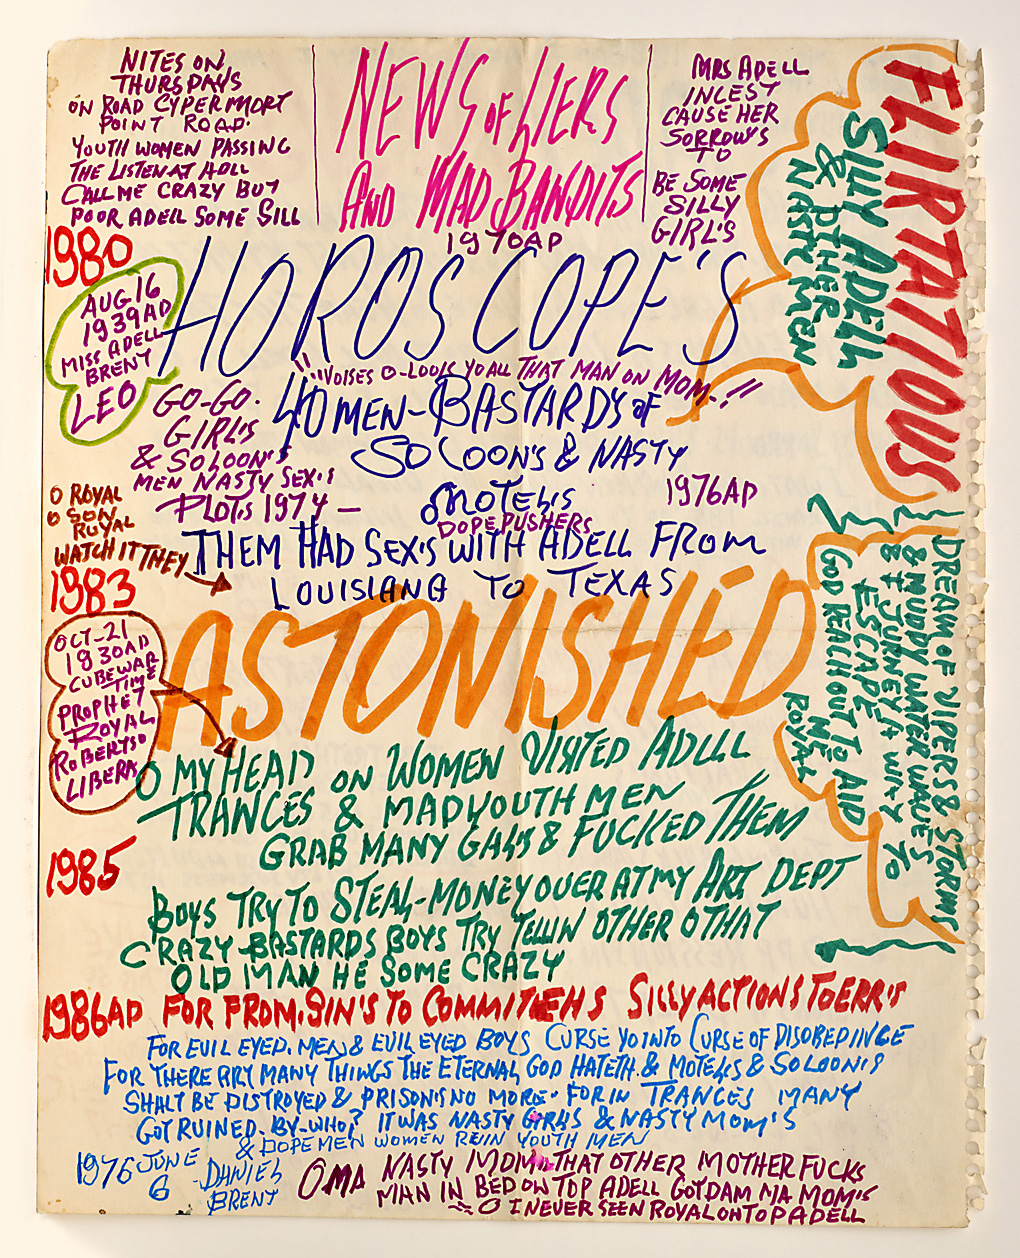 NITES ON
THURSDAYS
ON ROAD CYPERMORT
POINT ROAD.
YOUTH WOMEN PASSING
THE LISTEN AT ADLL
CALL ME CRAZY BUT
POOR ADELL SOME SILL
NEWS OF LIERS
AND MAD BANDITS
1970AD
MRS ADELL
INCEST
CAUSE HER
SORROWS
TO
BE SOME
SILLY
GIRL'S
FLIRTATIOUS
SILLY ADELL
& OTHER
NASTY MEN
1980
AUG 16
1939AD
MISS ADELL
BRENT
LEO
HOROSCOPE'S
"VOISES O-LOOK YO ALL THAT MAN ON MOM.!!
WOMEN-BASTARDS OF
SOLOON'S & NASTY
MOTELS
1976AD
GO-GO.
GIRL'S
& SOLOON'S
MEN NASTY SEX'S
PLOTS 1974 –
DOPE PUSHERS
THEM HAD SEX'S WITH ADELL FROM
LOUISIANA TO TEXAS
O ROYAL
O SON
ROYAL
WATCH IT THEY
1983
ASTONISHED
OCT-21
1930AD
CUBEWAR
TIME
PROPHET
ROYAL
ROBERTSO
LIBERA
DREAM OF VIPERS & STORMS
& MUDDY WATER WAVES
& I JURNEY A WAY TO
ESCAPE
GOD REACH OUT TO AID
ME
ROYAL
O MY HEAD ON WOMEN VISITED ADELL
TRANCES & MAD YOUTH MEN
GRAB MANY GALS & FUCKED THEM
1985
BOYS TRY TO STEAL-MONEY OVER AT MY ART DEPT
CRAZY-BASTARDS BOYS TRY TELLIN OTHER O THAT
OLD MAN HE SOME CRAZY
1986AD FOR FROM.SIN'S TO SILLY ACTIONS TO ERR'S
FOR EVIL EYED.MEN & EVIL EYED BOYS CURSE YO INTO CURSE OF DISOBEDINCE
FOR THERE ARY MANY THINGS THE ETERNAL GOD HATETH.& MOTELS & SOLOON'S
SHALT BE DISTROYED & PRISON'S NO MORE. FOR IN TRANCES MANY
GOT RUINED. BY-WHO? IT WAS NASTY GIRLS & NASTY MOM'S
& DOPE MEN WOMEN REIN YOUTH MEN
1976 JUNE
6 - DANIEL
BRENT
O MA NASTY MOMA THAT OTHER MOTHER FUCKS
MAN IN BED ON TOP ADELL GOTDAM MOM'S
O I NEVER SEEN ROYAL ONTOP ADELL